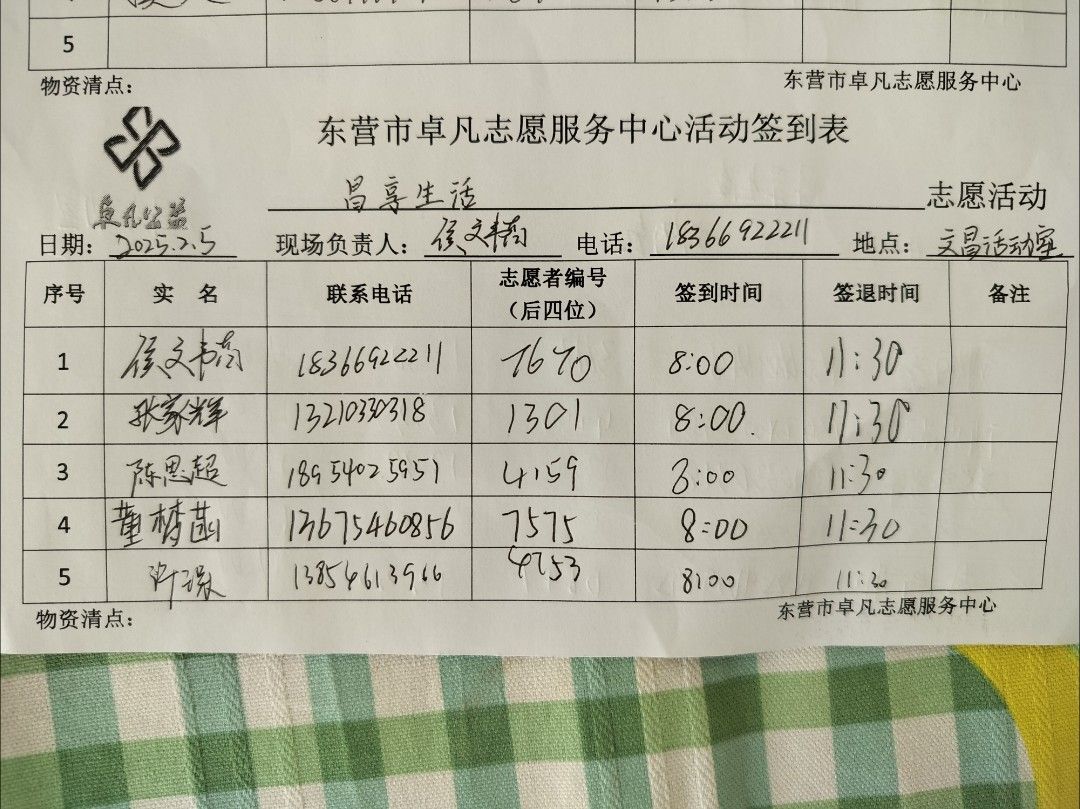 5
物资清点：
东营市卓凡志愿服务中心
东营市卓凡志愿服务中心活动签到表
卓凡公益
昌享生活 志愿活动
日期：2025.2.5 现场负责人：侯文韦茵 电话：18366922211 地点：文昌活动室
序号 实 名 联系电话 志愿者编号（后四位） 签到时间 签退时间 备注
1 侯文 18366922211 7670 8:00 11:30
2 张家辉 13210330318 1301 8:00 11:30
3 陈思超 18954025951 4159 8:00 11:30
4 董梦菡 13675460856 7575 8:00 11:30
5 许 13854613966 4753 8:00 11:30
物资清点：
东营市卓凡志愿服务中心